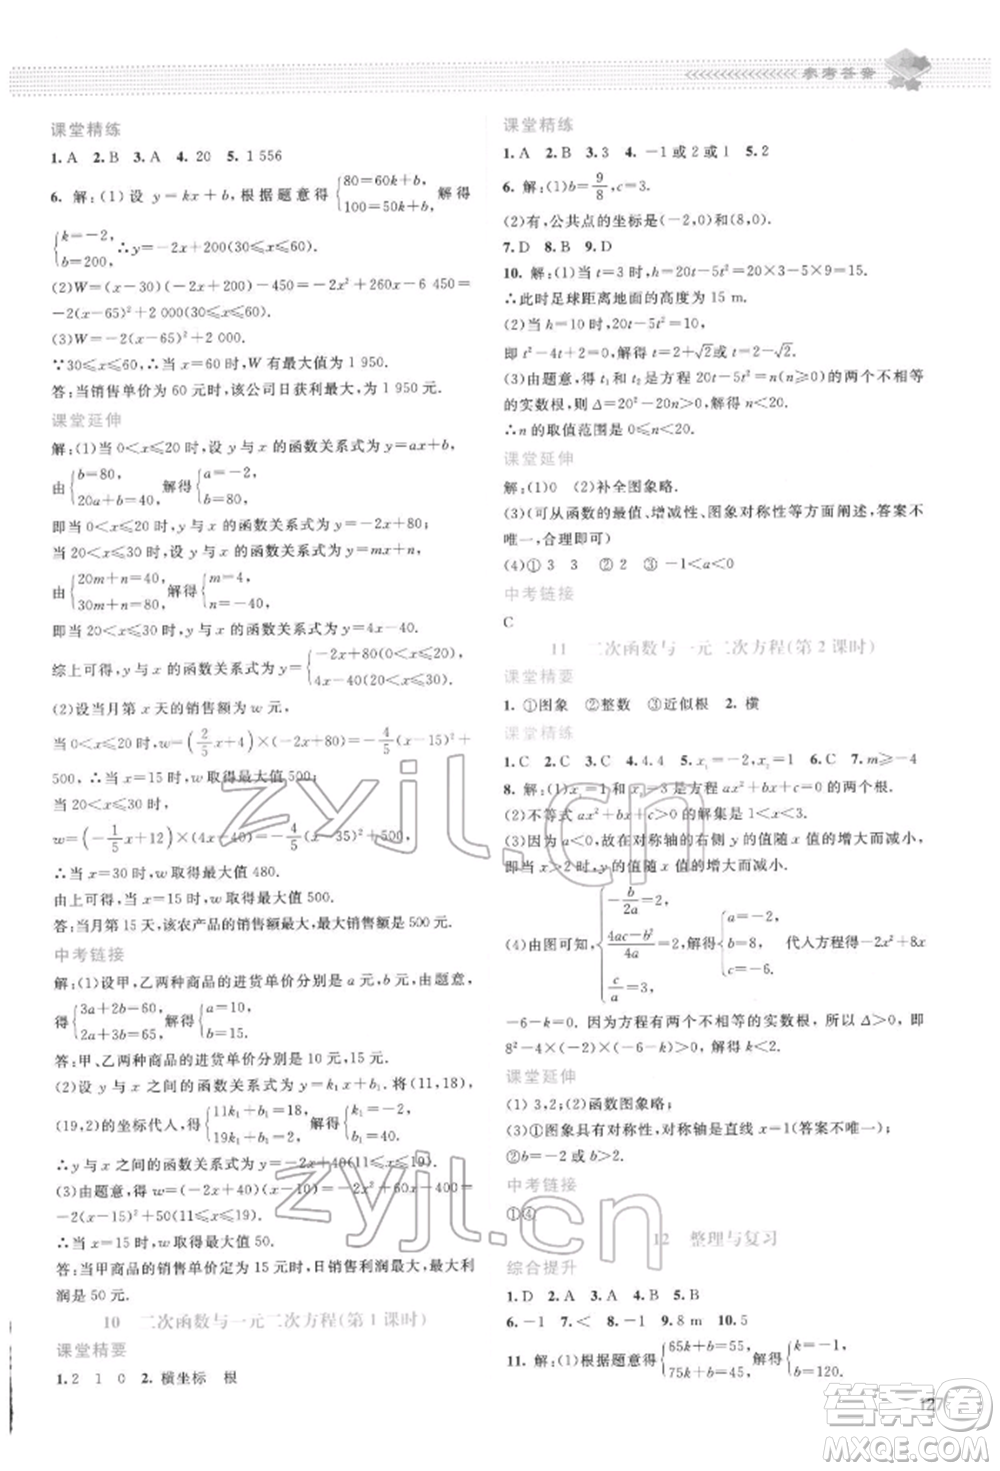 参考答案
课堂精练
1. A  2. B  3. A  4. 20  5. 1 556
6. 解:(1)设 y=kx+b,根据题意得{80=60k+b, 100=50k+b. 解得
{k=-2, b=200, ∴y=-2x+200(30≤x≤60).
(2)W=(x-30)(-2x+200)-450=-2x²+260x-6 450
=-2(x-65)²+2 000(30≤x≤60).
(3)W=-2(x-65)²+2 000.
∵30≤x≤60,∴当 x=60 时,W 有最大值为 1 950.
答:当销售单价为 60 元时,该公司日获利最大,为 1 950 元.
课堂延伸
解:(1)当 0<x≤20 时,设 y 与 x 的函数关系式为 y=ax+b,
由{b=80, 20a+b=40, 解得{a=-2, b=80,
即当 0<x≤20 时,y 与 x 的函数关系式为 y=-2x+80;
当 20<x≤30 时,设 y 与 x 的函数关系式为 y=mx+n,
由{20m+n=40, 30m+n=80, 解得{m=4, n=-40,
即当 20<x≤30 时,y 与 x 的函数关系式为 y=4x-40.
综上可得,y 与 x 的函数关系式为{-2x+80(0<x≤20), 4x-40(20<x≤30).
(2)设当月第 x 天的销售额为 w 元,
当 0<x≤20 时,w=(2/5x+4)×(-2x+80)=-4/5(x-15)²+
500,∴当 x=15 时,w 取得最大值 500;
当 20<x≤30 时,
w=(-1/5x+12)×(4x-40)=-4/5(x-35)²+500,
∴当 x=30 时,w 取得最大值 480.
由上可得,当 x=15 时,w 取得最大值 500.
答:当月第 15 天,该农产品的销售额最大,最大销售额是 500 元.
中考链接
解:(1)设甲、乙两种商品的进货单价分别是 a 元,b 元,
得{3a+2b=60, 2a+3b=65, 解得{a=10, b=15.
答:甲、乙两种商品的进货单价分别是 10 元,15 元.
(2)设 y 与 x 之间的函数关系式为 y=k₁x+b₁,将(11,18),
(19,2)的坐标代人,得{11k₁+b₁=18, 19k₁+b₁=2, 解得{k₁=-2, b₁=40.
∴y 与 x 之间的函数关系式为 y=-2x+40(11≤x≤19).
(3)由题意,得 w=(-2x+40)(x-10)=-2x²+60x-400=
-2(x-15)²+50(11≤x≤19).
∴当 x=15 时,w 取得最大值 50.
答:当甲商品的销售单价定为 15 元时,日销售利润最大,最大利
润是 50 元.
10  二次函数与一元二次方程(第 1 课时)
课堂精要
1. 2  1  0  2. 横坐标  根
课堂精练
1. A  2. B  3. 3  4. -1或2或1  5. 2
6. 解:(1)b=9/8,c=3.
(2)有,公共点的坐标是(-2,0)和(8,0).
7. D  8. B  9. D
10. 解:(1)当 t=3 时,h=20t-5t²=20×3-5×9=15.
∴此时足球距离地面的高度为 15 m.
(2)当 h=10 时,20t-5t²=10,
即 t²-4t+2=0,解得 t=2+√2或 t=2-√2.
(3)由题意,得 t₁ 和 t₂ 是方程 20t-5t²=n(n≥0)的两个不相等
的实数根,所以 Δ=20²-20n>0,解得 n<20.
∴n 的取值范围是 0≤n<20.
课堂延伸
解:(1)0  (2)补全图象略.
(3)(可从函数的最值、增减性、图象对称性等方面阐述,答案不
唯一,合理即可)
(4)①3  3  ②2  ③-1<a<0
中考链接
C
11  二次函数与一元二次方程(第 2 课时)
课堂精要
1. ①图象  ②整数  ③近似根  2. 横
课堂精练
1. C  2. C  3. C  4. 4.4  5. x₁=-2,x₂=1  6. C  7. m≥-4
8. 解:(1)x₁=1 和 x₂=3 是方程 ax²+bx+c=0 的根.
(2)不等式 ax²+bx+c>0 的解集是 1<x<3.
(3)因为 a<0,所以在对称轴的右侧 y 的值随 x 值的增大而减小,
即当 x>2 时,y 的值随 x 值的增大而减小.
(4)由图可知,{-b/2a=2, (4ac-b²)/4a=2, c/a=3, 解得{a=-2, b=8, c=-6. 代人方程得-2x²+8x
-6-k=0. 因为方程有两个不相等的实数根,所以 Δ>0,即
8²-4×(-2)×(-6-k)>0,解得 k<2.
课堂延伸
(1) 3,2;(2)函数图象略;
(3)①图象具有对称性,对称轴是直线 x=1(答案不唯一);
②b=2 或 b>2.
中考链接
①④
12  整理与复习
综合提升
1. D  2. A  3. A  4. B  5. B
6. -1  7. <  8. -1  9. 8 m  10. 5
11. 解:(1)根据题意得{65k+b=55, 75k+b=45, 解得{k=-1, b=120.
127
zyjl.cn
zyjl.cn
答案圈
MXQE.COM